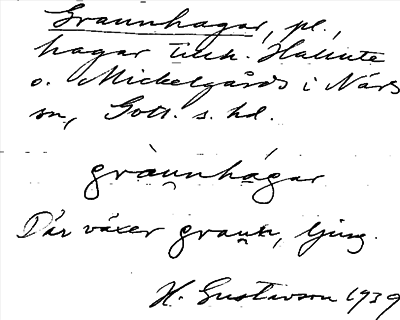 Graunhagar, pl.,
hagar tillh. Hallute
o. Mickelgårds i När
sn, Gotl. s. hd.
gràu̯nhágar
Där växer grau̯n, ljung.
H. Gustavson 1939